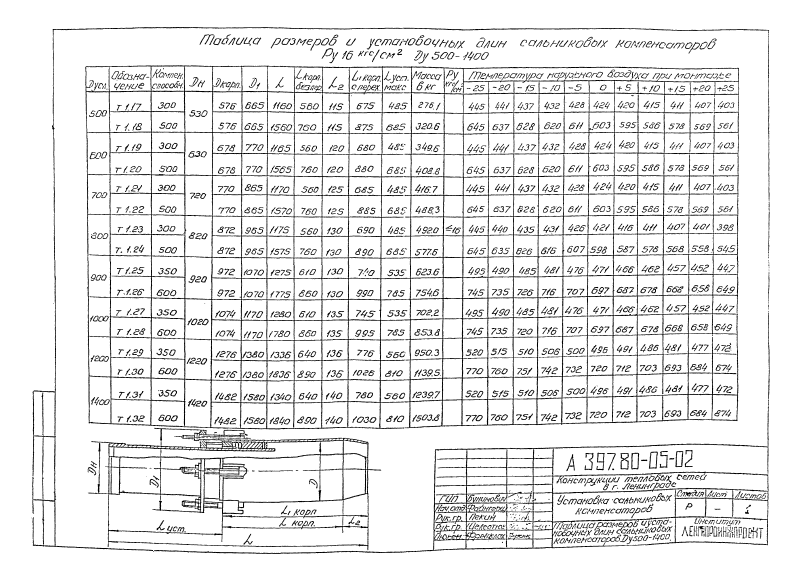 Таблица размеров и установочных длин сальниковых компенсаторов
Ру 16 кгс/см² Ду 500-1400
Dусл. Обозна-чение Компен. способн. Dн Dкорп. D1 L Lкорп. L2 L1 корп. с перех. Lуст. макс Масса в кг Ру кгс/см Температура наружного воздуха при монтаже
-25 -20 -15 -10 -5 0 +5 +10 +15 +20 +25
500 Т 1.17 300 530 576 665 1160 560 115 675 485 276,1 445 441 437 432 428 424 420 415 411 407 403
Т 1.18 500 576 665 1560 760 115 875 685 320.6 645 637 628 620 611 603 595 586 578 569 561
600 Т 1.19 300 630 678 770 1165 560 120 680 485 349.6 445 441 437 432 428 424 420 415 411 407 403
Т 1.20 500 678 770 1565 760 120 880 685 408.8 645 637 628 620 611 603 595 586 578 569 561
700 Т 1.21 300 720 770 865 1170 560 125 685 485 416.7 445 441 437 432 428 424 420 415 411 407 403
Т 1.22 500 770 865 1570 760 125 885 685 488,3 645 637 628 620 611 603 595 586 578 569 561
800 Т 1.23 300 820 872 965 1175 560 130 690 485 492.0 ≤16 445 440 435 431 426 421 416 411 407 401 398
Т. 1.24 500 872 965 1575 760 130 890 685 577.6 645 635 626 616 607 598 587 578 568 558 545
900 Т 1.25 350 920 972 1070 1275 610 130 740 535 623.6 495 490 485 481 476 471 466 462 457 452 447
Т.1.26 600 972 1070 1775 860 130 990 785 754.6 745 735 726 716 707 697 687 678 668 658 649
1000 Т 1.27 350 1020 1074 1170 1280 610 135 745 535 702.2 495 490 485 481 476 471 466 462 457 452 447
Т 1.28 600 1074 1170 1780 860 135 995 785 853.8 745 735 720 716 707 697 687 678 668 658 649
1200 Т 1.29 350 1220 1276 1380 1336 640 136 776 560 950.3 520 515 510 506 500 496 491 486 481 477 472
Т 1.30 600 1276 1380 1836 890 136 1026 810 1139.5 770 760 751 742 732 720 712 703 693 684 674
1400 Т 1.31 350 1420 1482 1580 1340 640 140 780 560 1239.7 520 515 510 506 500 496 491 486 481 477 472
Т 1.32 600 1482 1580 1840 890 140 1030 810 1503.8 770 760 751 742 732 720 712 703 693 684 874
Dн
D1
D
L1 корп
L корп.
L2
L уст.
L
А 397.80-05-02
Конструкции тепловых сетей
в г. Ленинграде
Установка сальниковых
компенсаторов
Стадия Лист Листов
Р – 1
ГИП
Нач.отд.
Рук.гр.
Рук.гр.
Таблица размеров и уста-
новочных длин сальниковых
компенсаторов Ду500-1400.
Институт
ЛЕНГИПРОИНЖПРОЕКТ